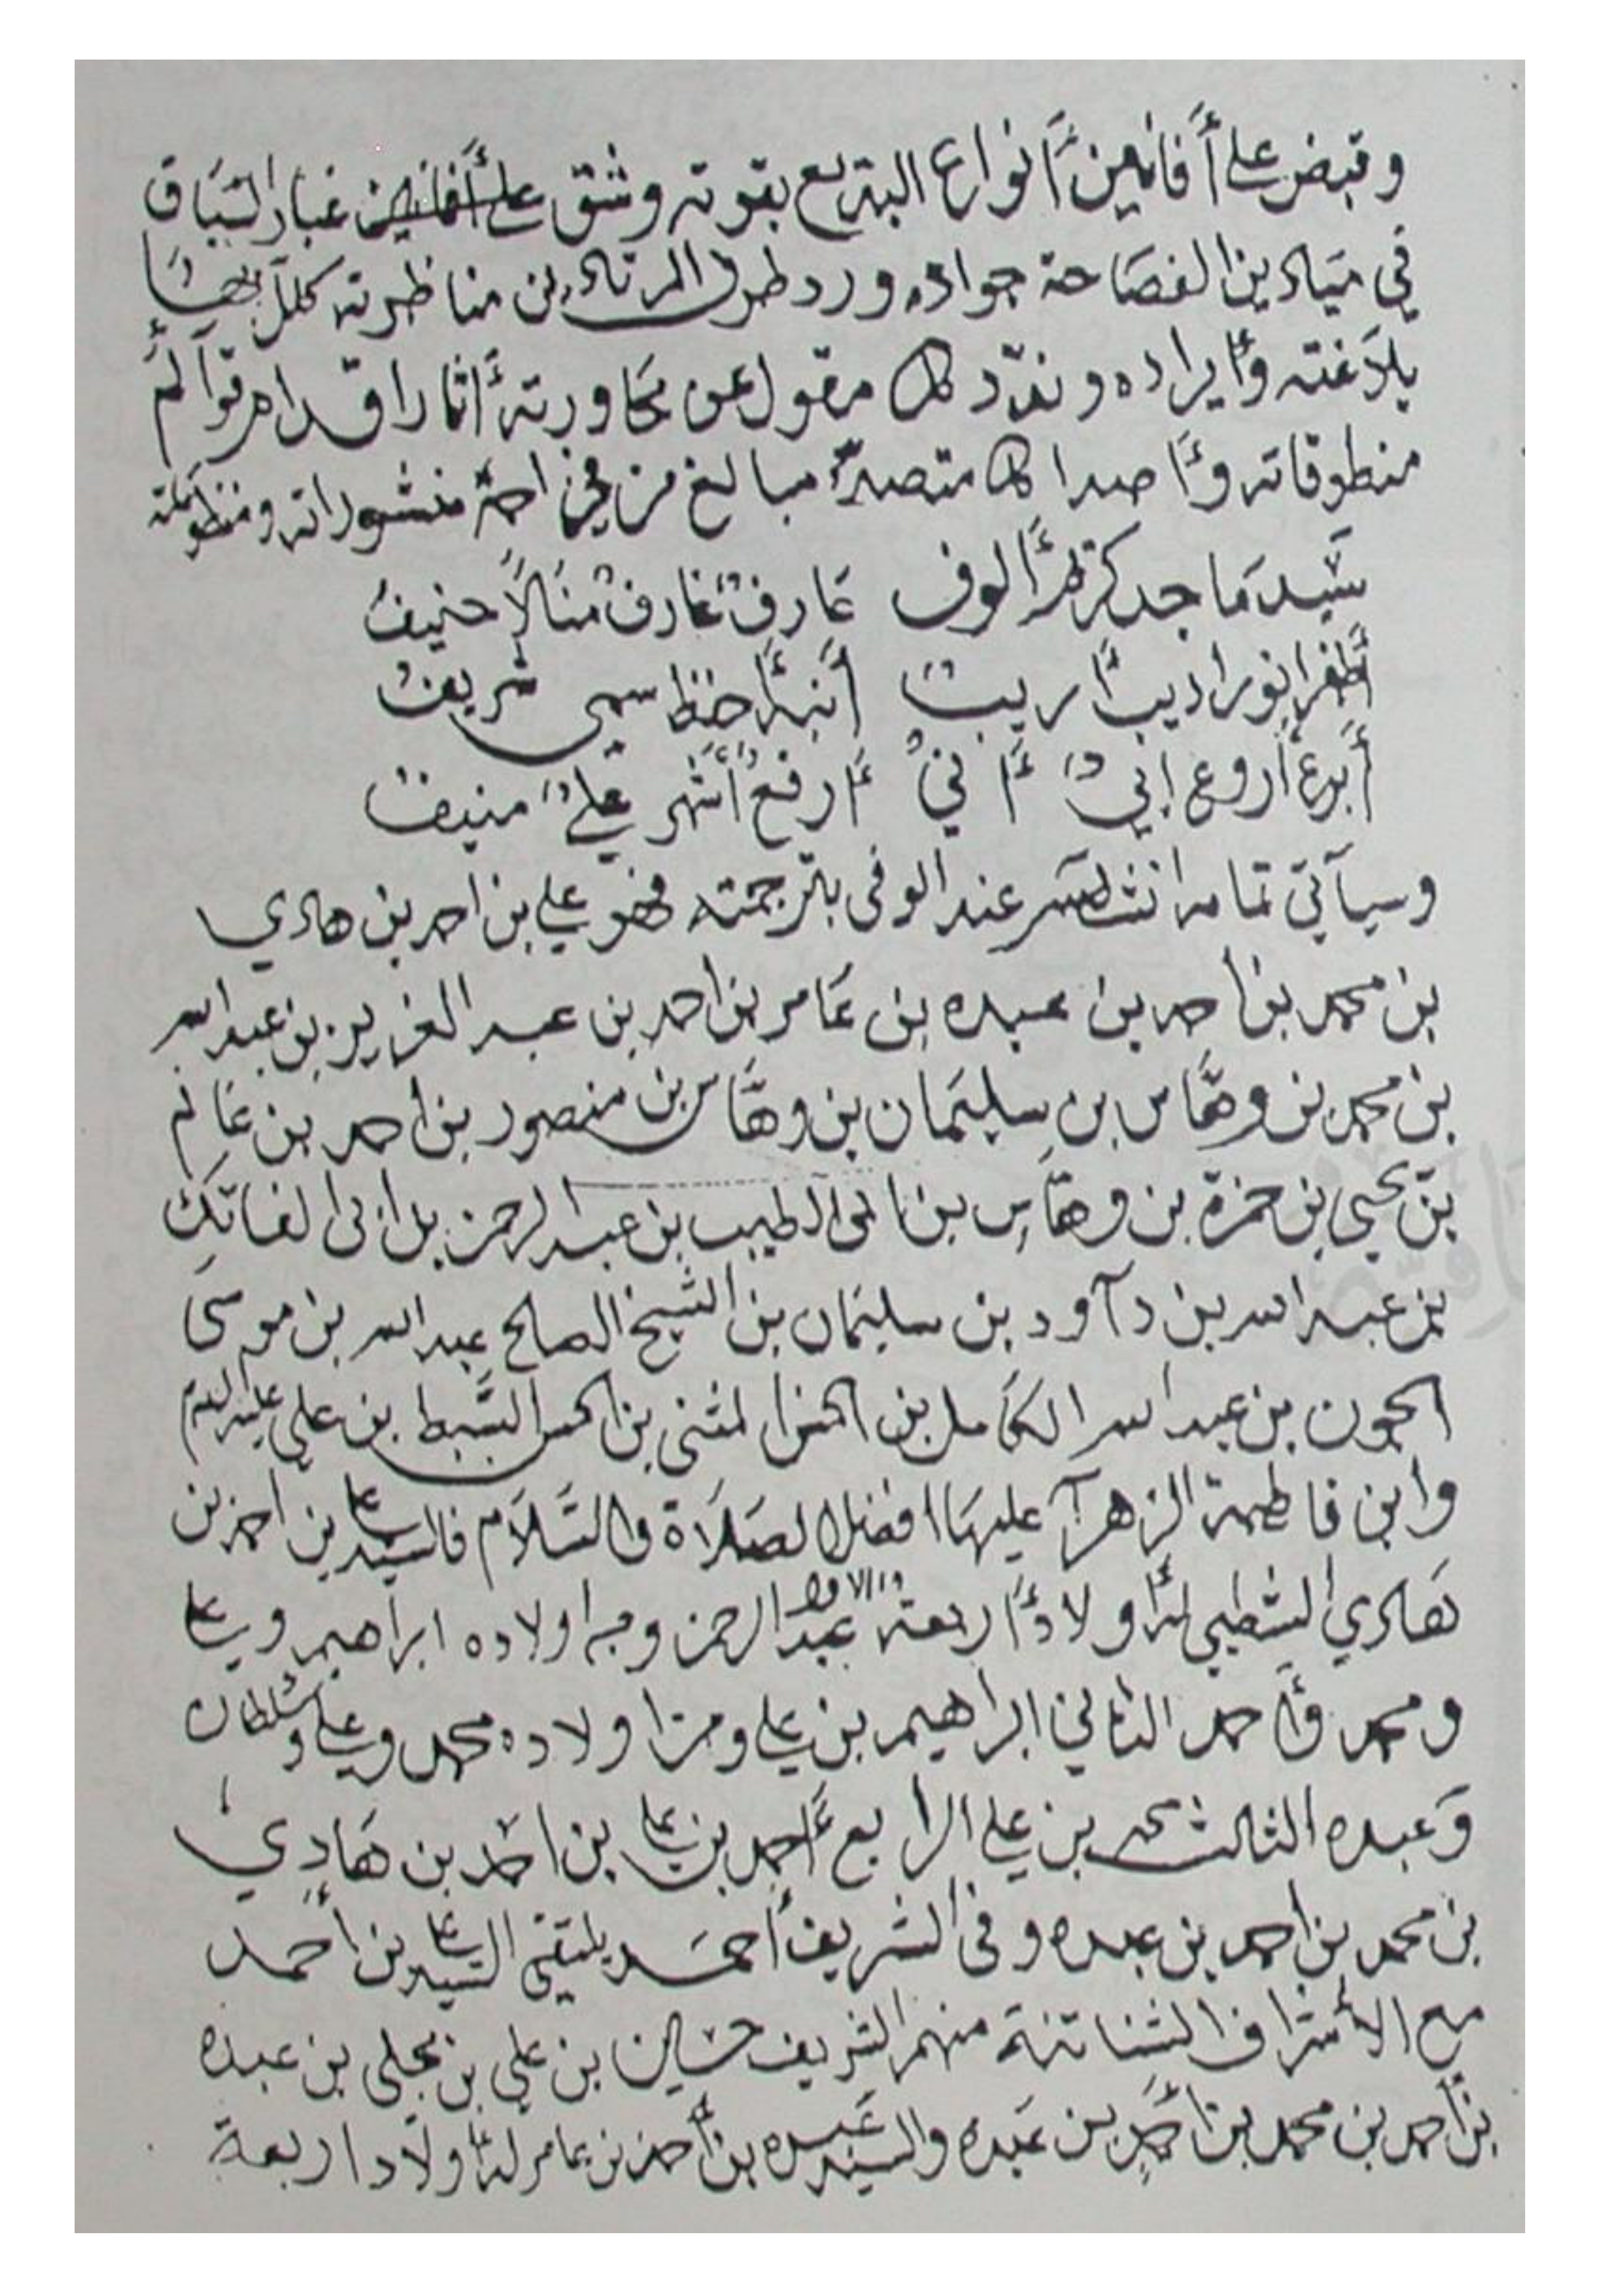 وقبض على أفانين أنواع البديع بقوته وشق على أفانين غبار السباق
في ميادين الفصاحة جواده ورد طرف المرتاد من مناظرته كلل
بلاغته وإيراده وندد كل مقول عن محاورته آثار اقدام
منطوقاته وأصدا كل متصد مبالغ من منشوراته ومنظوماته
سيد ماجد كريم ألوف عارف غارف منالا حنيف
أديبا أريب حظ سمى شريف
أبدع أروع أبي أرفع أشهر علي منيف
وسيأتي تمام عند الوفى بترجمته فهو علي بن احمد بن هادي
بن محمد بن احمد بن عبده بن عامر بن احمد بن عبد العزيز بن عبد الله
بن محمد بن وهاس بن سليمان بن وهاس بن منصور بن احمد بن غانم
بن يحيى بن حمزة بن وهاس بن ابى الطيب بن عبد الرحمن بن ابى الفاتك
بن عبد الله بن دآود بن سليمان بن الشيخ الصالح عبد الله بن موسى
الجون بن عبد الله الكامل بن الحسن المثنى بن الحسن السبط بن علي عليه السلام
وابن فاطمة الزهرآ عليها افضل الصلاة والسلام فالسيد علي بن احمد بن
هادي الشطيبي له أولادا أربعة الاول عبد الرحمن ومن اولاده ابراهيم وعلي
ومحمد وأحمد الثاني ابراهيم بن علي ومن اولاده محمد وعلي وسلطان
وعبده الثالث محمد بن علي الرابع أحمد بن علي بن احمد بن هادي
بن محمد بن احمد بن عبده وفى الشريف أحمد يلتقي السيد علي بن أحمد
مع الأشراف الشناترة منهم الشريف حسين بن علي بن مجلى بن عبده
بن أحمد بن محمد بن أحمد بن عبده والسيد عبده بن أحمد بن عامر له اولادا اربعة